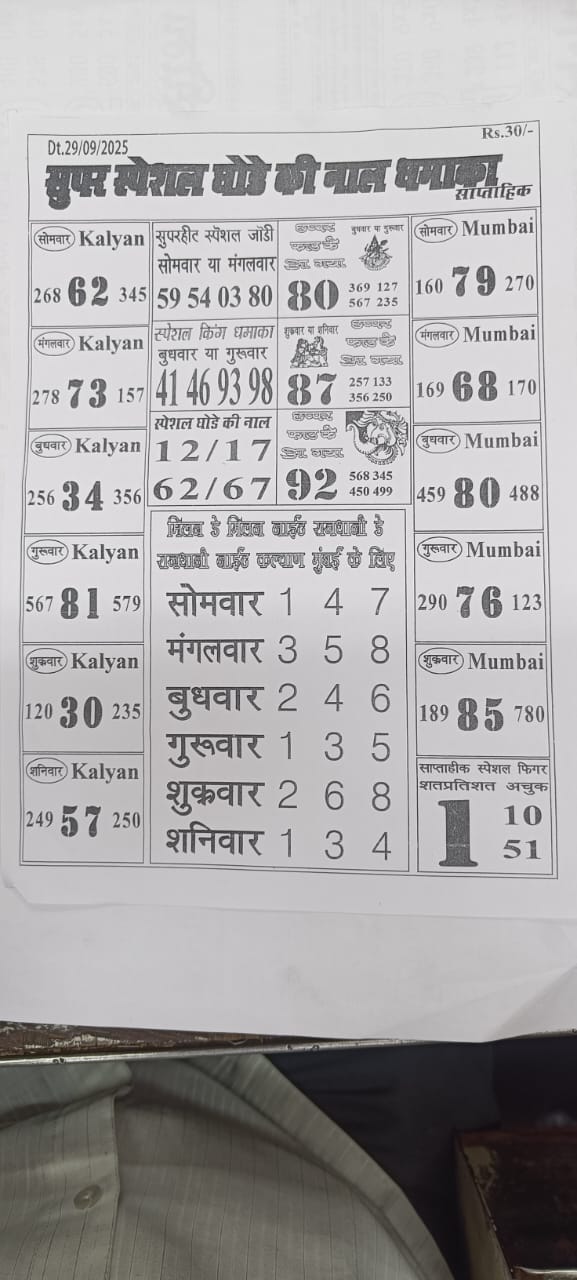 Rs.30/-
Dt.29/09/2025
सुपर स्पेशल घोडे की नाल धमाका
साप्ताहिक
सोमवार Kalyan
268 62 345
मंगलवार Kalyan
278 73 157
बुधवार Kalyan
256 34 356
गुरूवार Kalyan
567 81 579
शुक्रवार Kalyan
120 30 235
शनिवार Kalyan
249 57 250
सुपरहीट स्पेशल जोडी
सोमवार या मंगलवार
59 54 03 80
स्पेशल किंग धमाका
बुधवार या गुरूवार
41 46 93 98
स्पेशल घोडे की नाल
12/17
62/67
छप्पर
फाड के
आ गया
बुधवार या गुरूवार
80
369 127
567 235
शुक्रवार या शनिवार
छप्पर
फाड के
आ गया
87
257 133
356 250
छप्पर
फाड के
आ गया
92
568 345
450 499
मिलन डे मिलन नाईट राजधानी डे
राजधानी नाईट कल्याण मुंबई के लिए
सोमवार 1 4 7
मंगलवार 3 5 8
बुधवार 2 4 6
गुरूवार 1 3 5
शुक्रवार 2 6 8
शनिवार 1 3 4
सोमवार Mumbai
160 79 270
मंगलवार Mumbai
169 68 170
बुधवार Mumbai
459 80 488
गुरूवार Mumbai
290 76 123
शुक्रवार Mumbai
189 85 780
साप्ताहीक स्पेशल फिगर
शतप्रतिशत अचुक
1 10
51